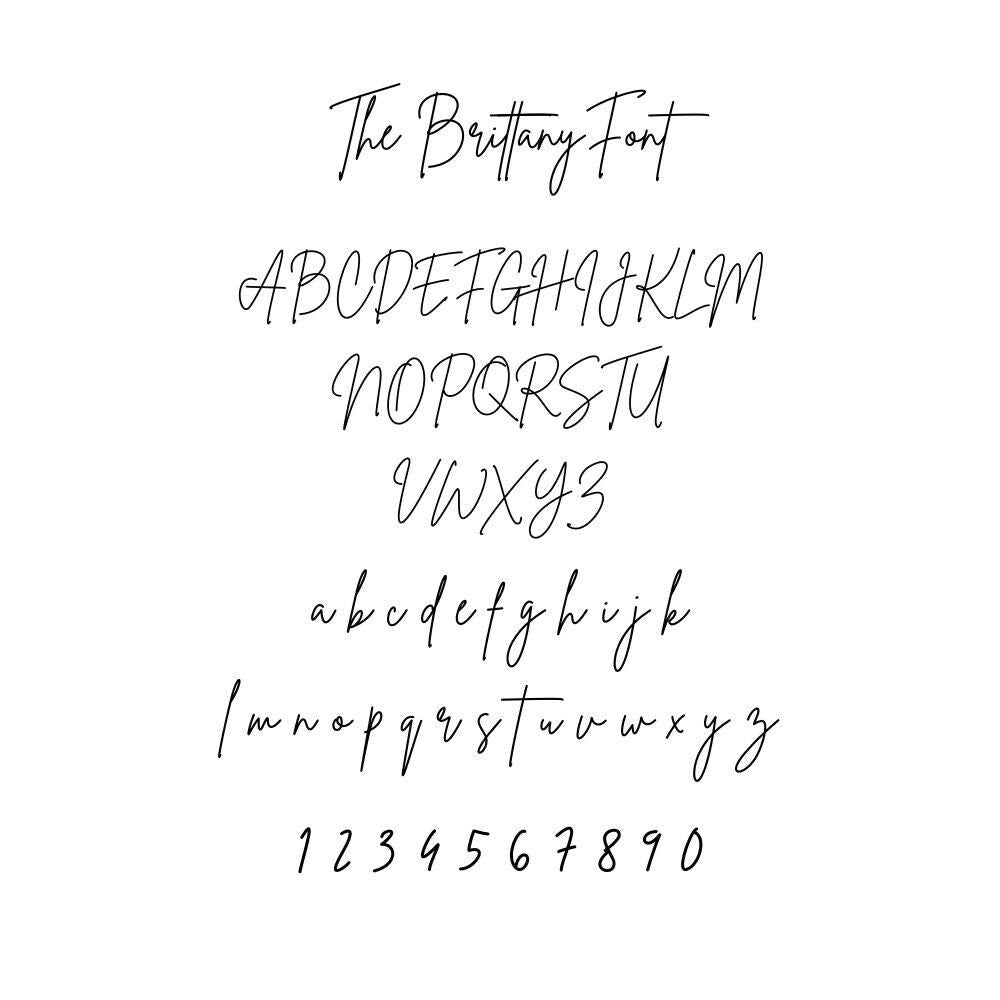 The Brittany Font
ABCDEFGHIJKLM
NOPQRSTU
VWXYZ
a b c d e f g h i j k
l m n o p q r s t u v w x y z
1 2 3 4 5 6 7 8 9 0